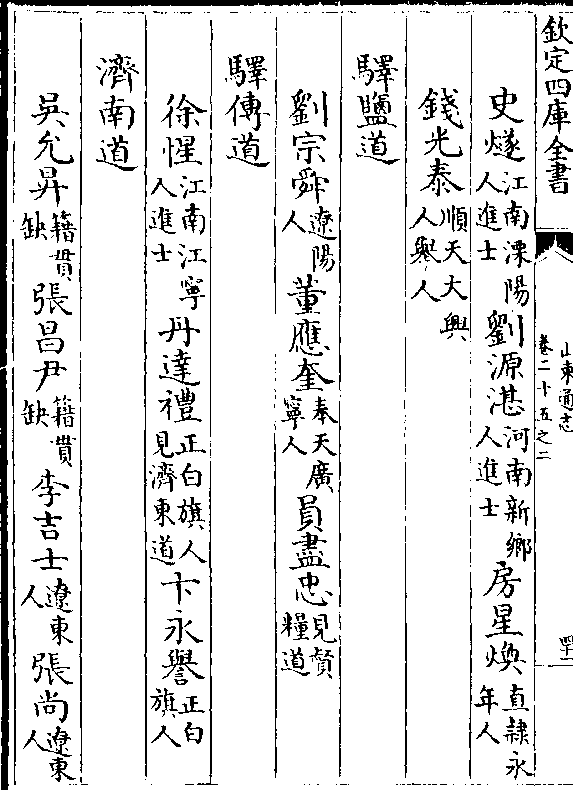 欽定四庫全書
山東通志
卷二十五之二
史燧江南溧陽人進士劉源湛河南新鄉人進士房星煥直隸永年人
錢光泰順天大興人舉人
驛鹽道
劉宗舜遼陽人董應奎奉天廣寧人員盡忠見督糧道
驛傳道
徐惺江南江寧人進士丹達禮正白旗人見濟東道卞永譽正白旗人
濟南道
吳允昇籍貫缺張昌尹籍貫缺李吉士遼東人張尚遼東人